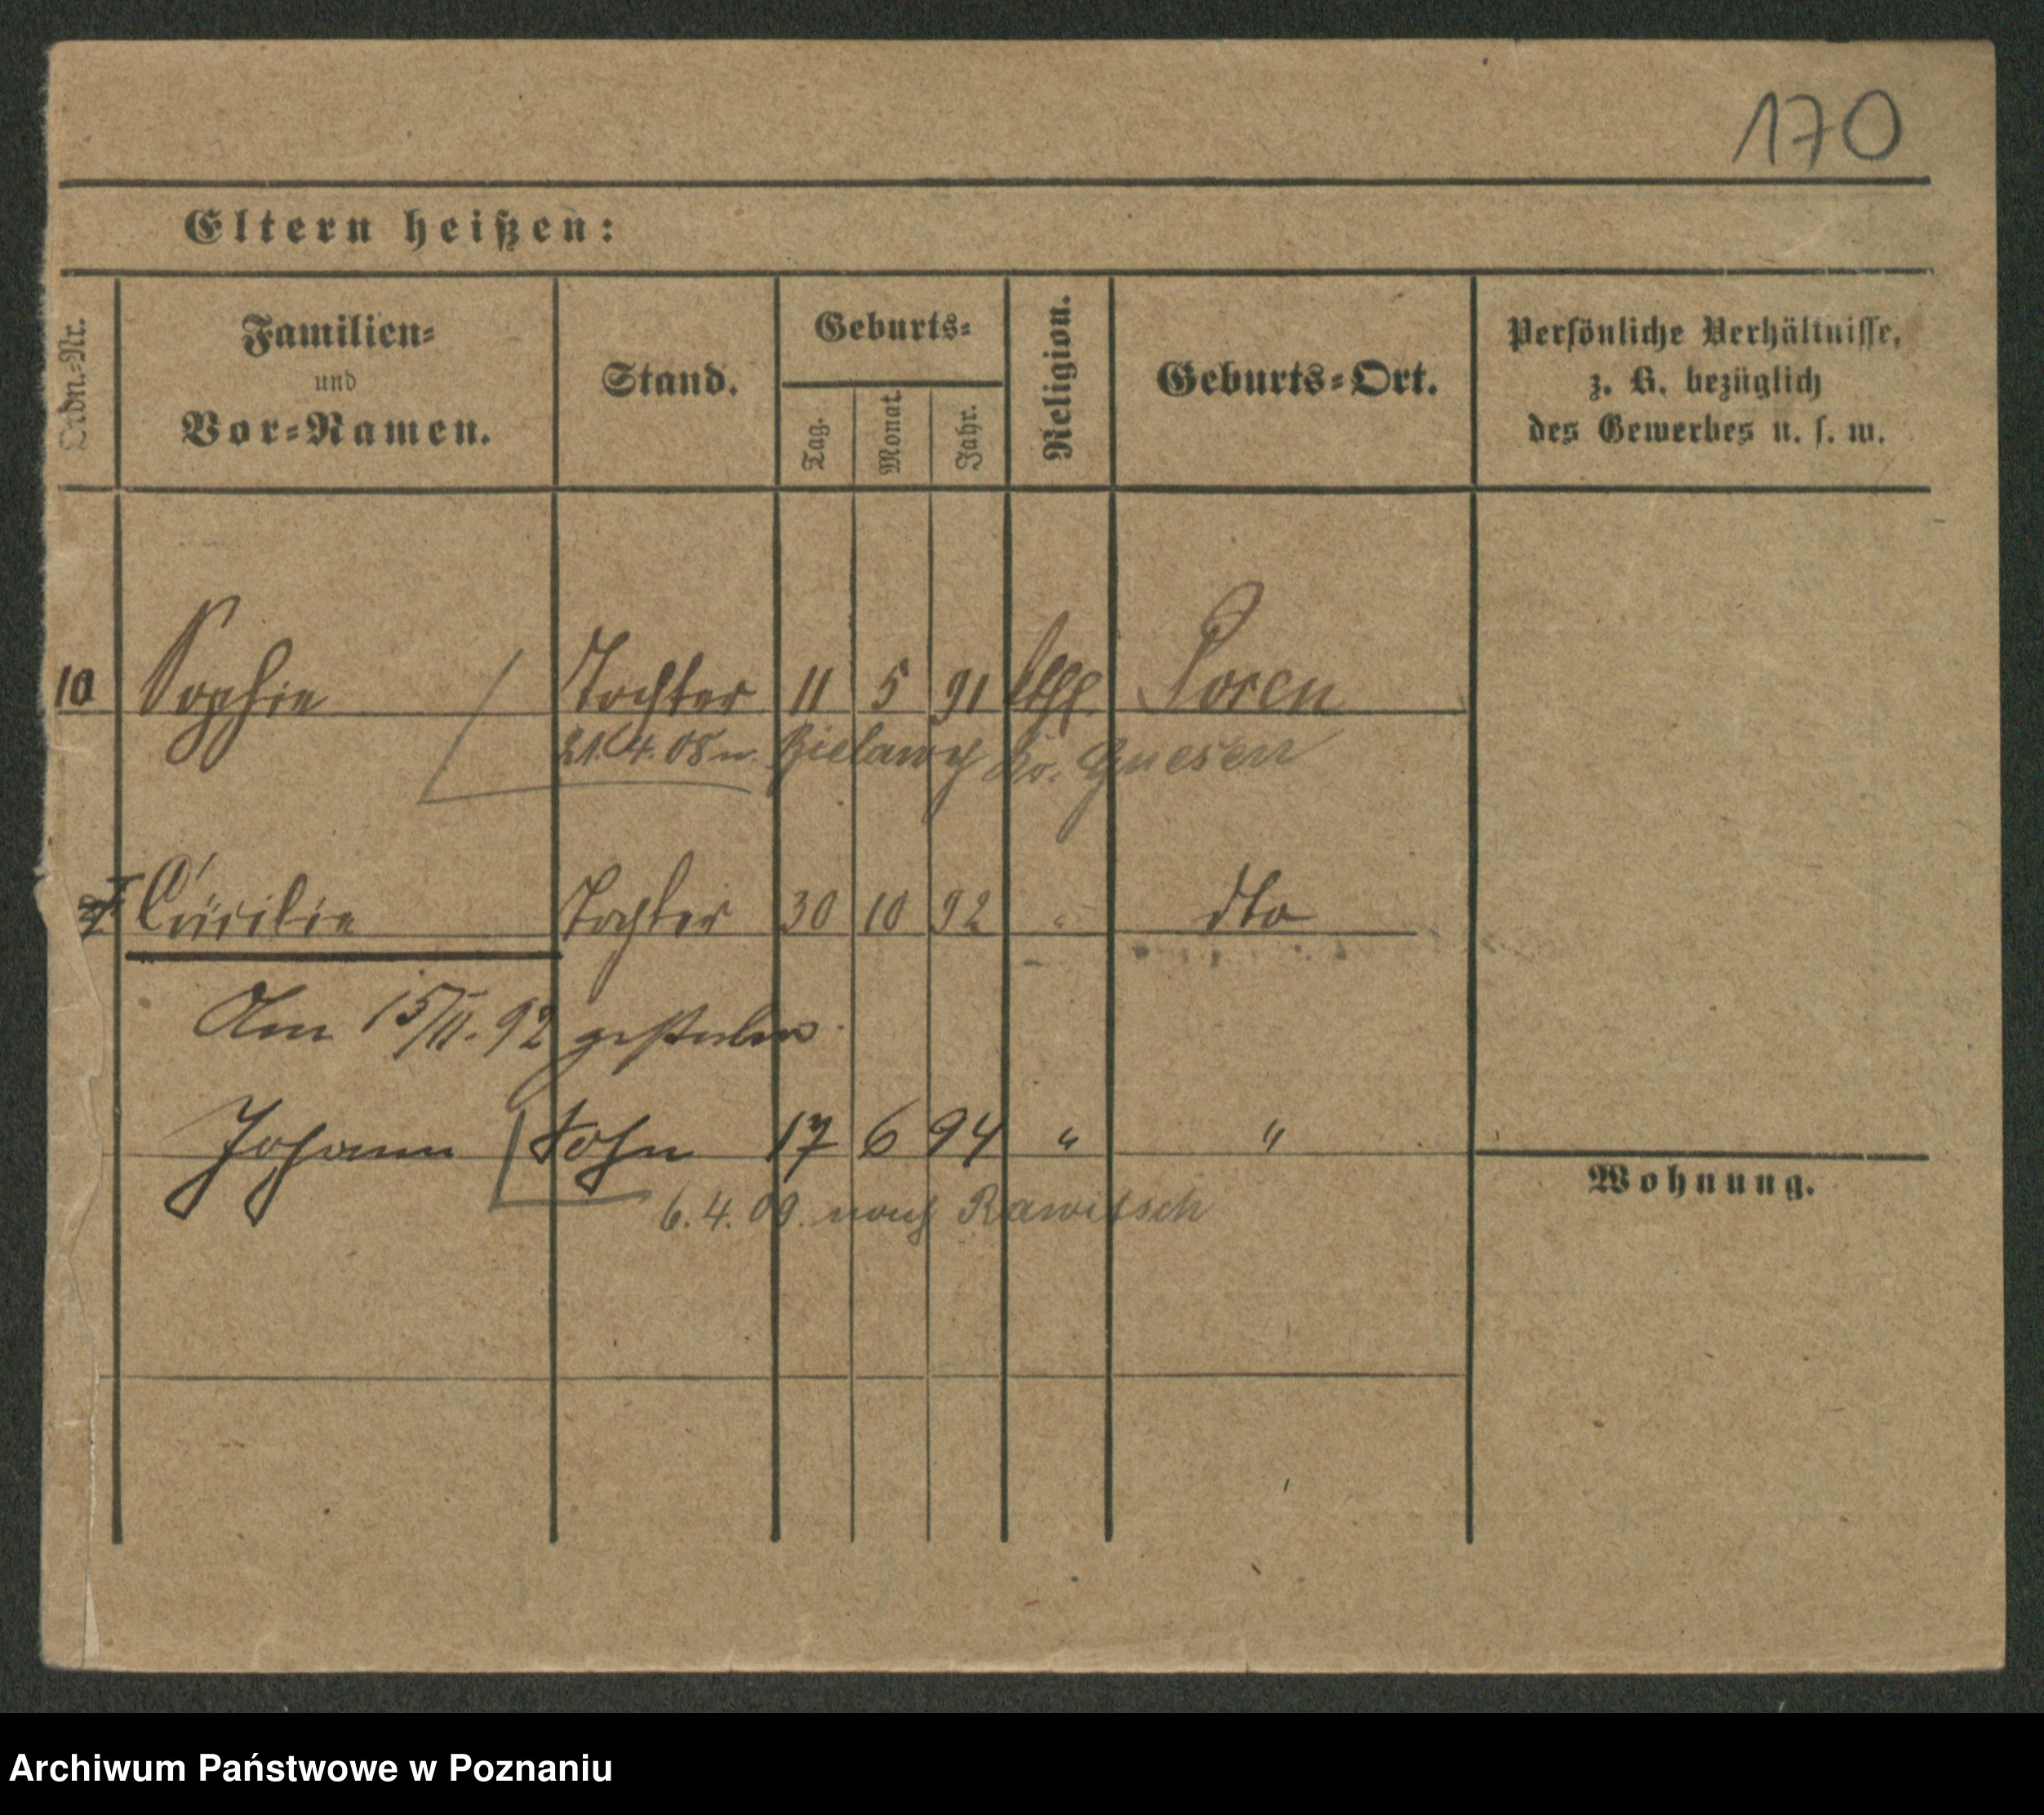 170
Eltern heißen:
Ordn.-Nr.
Familien-
und
Vor-Namen.
Stand.
Geburts-
Tag.
Monat.
Jahr.
Religion.
Geburts-Ort.
Persönliche Verhältnisse,
z. B. bezüglich
des Gewerbes u. s. w.
10 Sophie Tochter 11 5 91 kth. Posen
21.4.08 n. Bielawy Kr. Gnesen
Cäcilie Tochter 30 10 92 " dto
Am 15/11.92 gestorben
Johann Sohn 17 6 94 " "
6.4.09. nach Rawitsch
Wohnung.
Archiwum Państwowe w Poznaniu